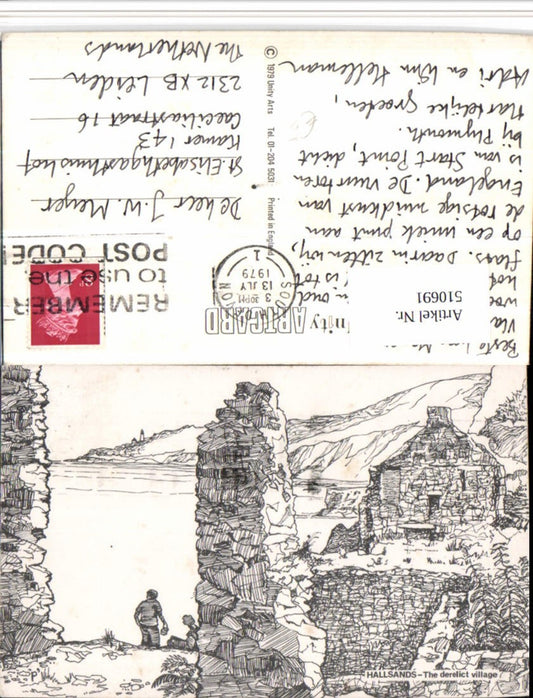 Beste
Vla
woe
hof is tot
flats. Daarin zitten wij,
op een uniek punt aan
de rotsige zuidkust van
Engeland. De vuurtoren
is van Start Point, dicht
bij Plymouth.
Hartelijke groeten,
Adri en Wim Helleman
Artikel Nr.
510691
nity
ARTCARD
© 1979 Unity Arts Tel. 01-204 5031 Printed in England
SOUTH
DEVON
3 30PM
13 JLY
1979
1
REMEMBER
to use the
POST CODE
De heer J.W. Meyer
St. Elisabethgasthuishof
Kamer 143
Caeciliastraat 16
2312 XB Leiden
The Netherlands
HALLSANDS – The derelict village